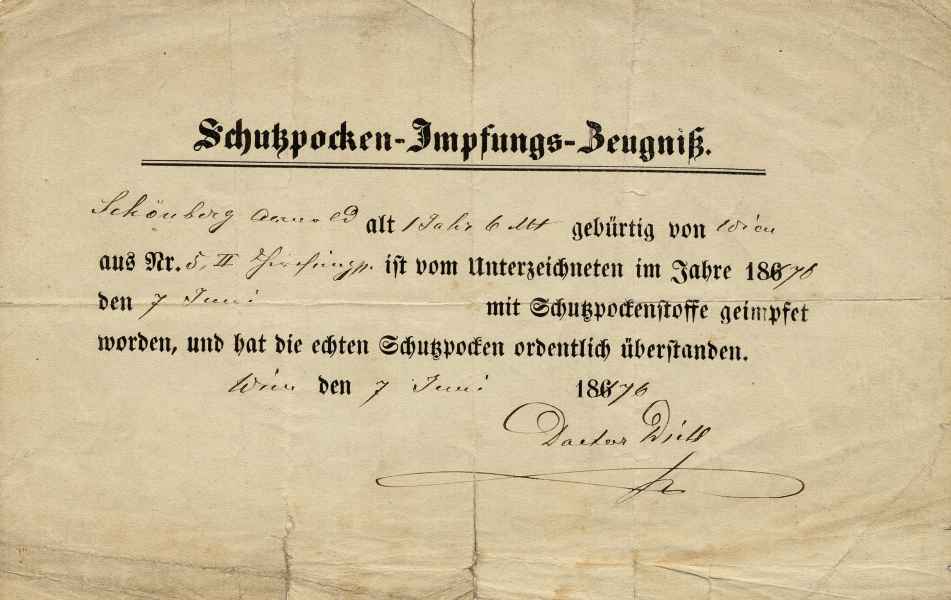 Schutzpocken-Impfungs-Zeugniß.
Schönberg Arnold alt 1 Jahr 6 Mt gebürtig von Wien
aus Nr. 5, II ist vom Unterzeichneten im Jahre 18676
den 7 Juni mit Schutzpockenstoffe geimpfet
worden, und hat die echten Schutzpocken ordentlich überstanden.
Wien den 7 Juni 18676
Doctor